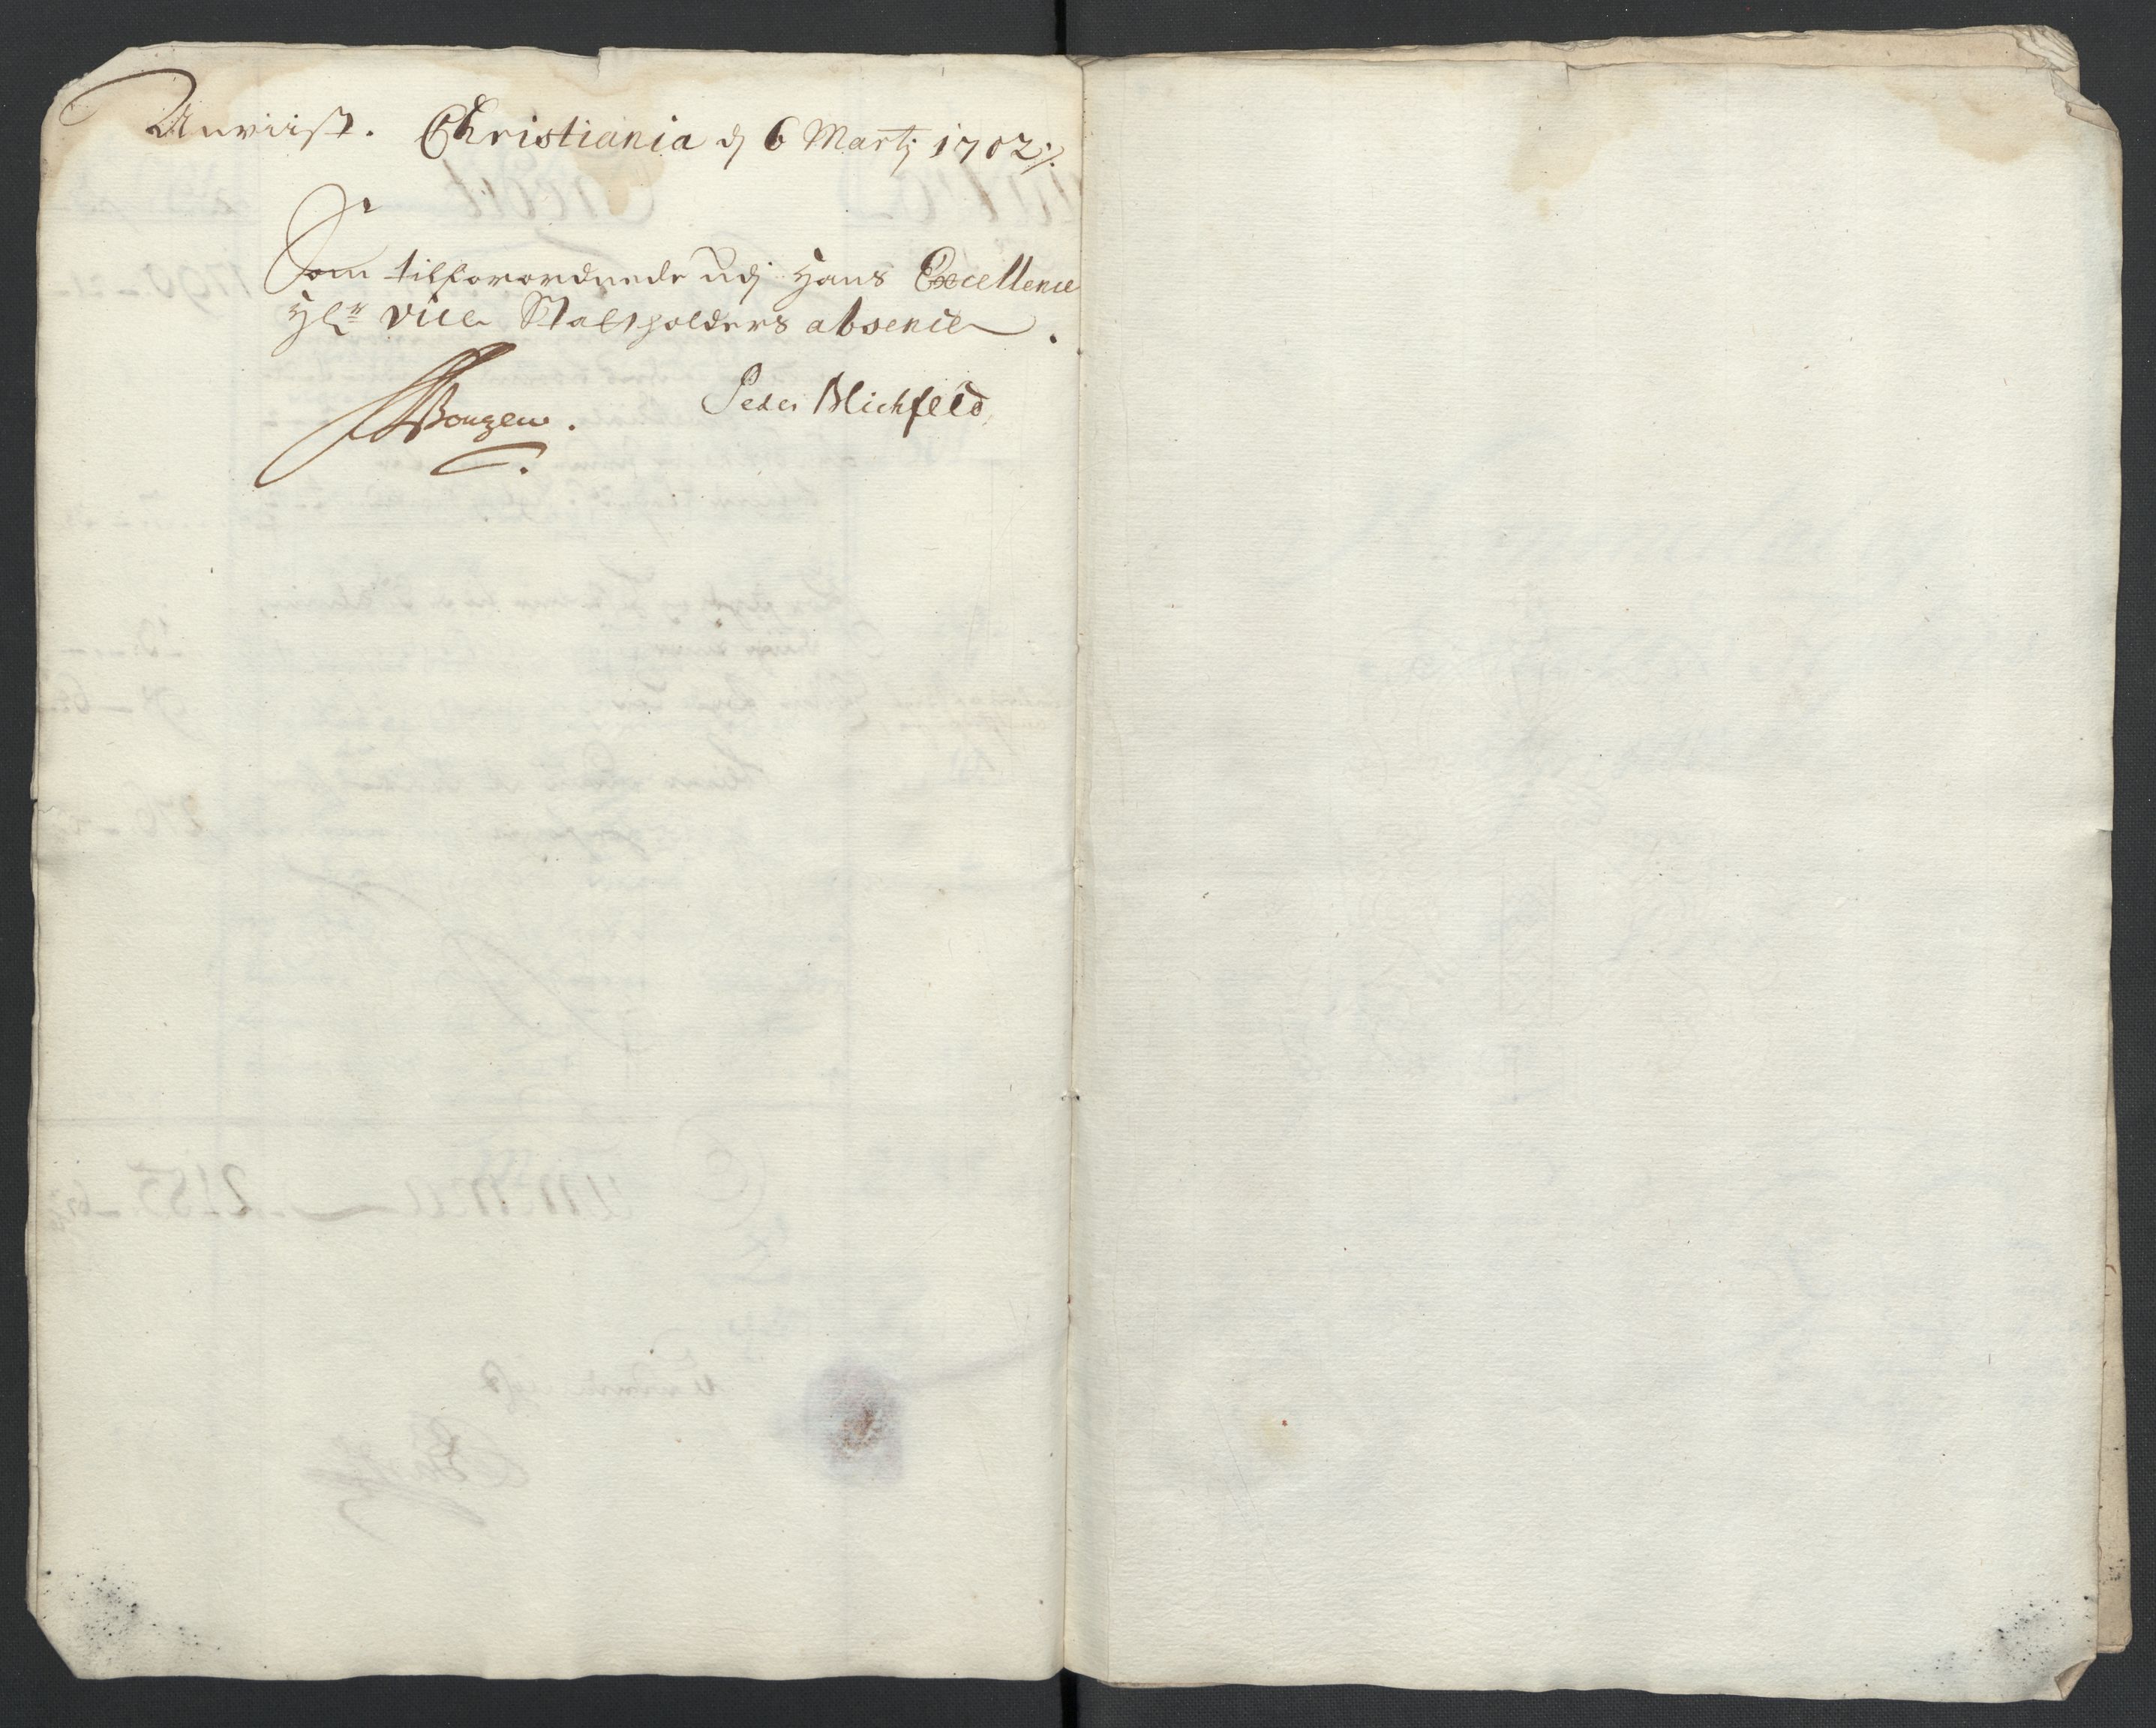 Anviist. Christiania d 6 Martj 1702 ./.
Som tilforordnede udj Hans Excellence
Hr. Vice Statholders absence .
Peder Blichfeld